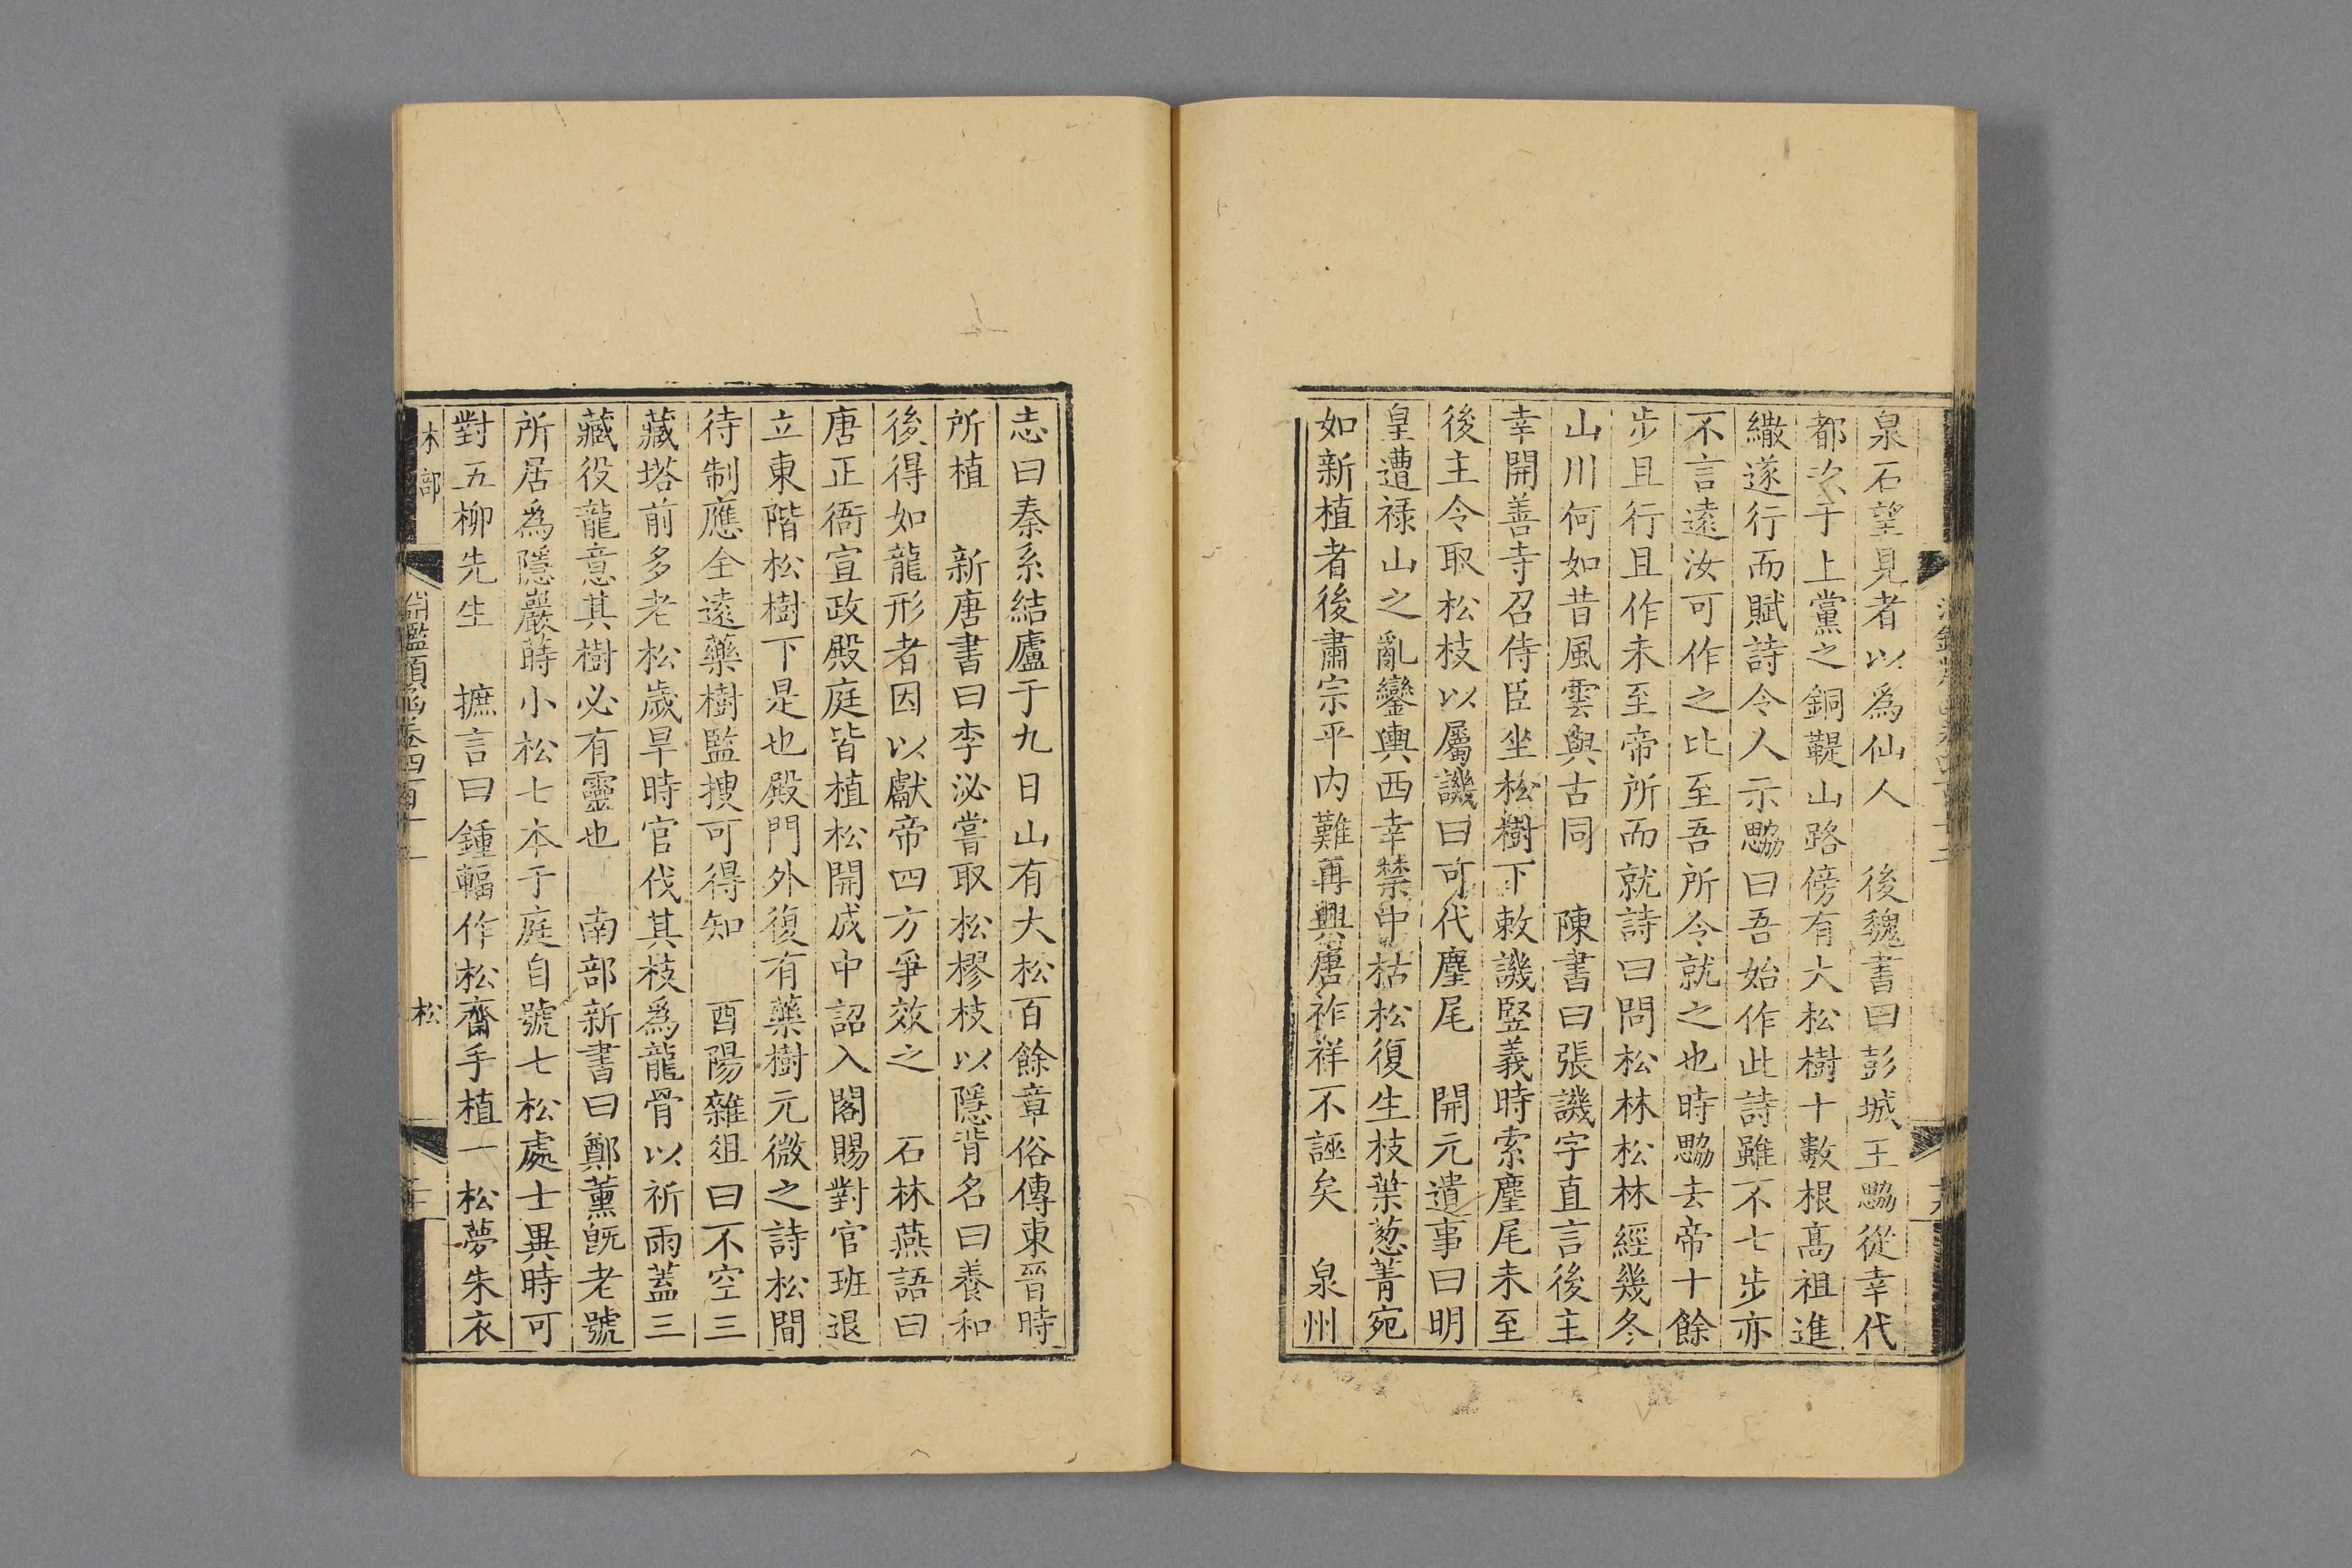 泉石望見者以爲仙人　後魏書曰彭城王勰從幸代
都次于上黨之銅鞮山路傍有大松樹十數根髙祖進
繖遂行而賦詩令人示勰曰吾始作此詩雖不七步亦
不言遠汝可作之比至吾所令就之也時勰去帝十餘
步且行且作未至帝所而就詩曰問松林松林經幾冬
山川何如昔風雲與古同　陳書曰張譏字直言後主
幸開善寺召侍臣坐松樹下敕譏竪義時索麈尾未至
後主令取松枝以屬譏曰可代麈尾　開元遺事曰明
皇遭禄山之亂鑾輿西幸禁中枯松復生枝葉葱菁宛
如新植者後肅宗平内難再興唐祚祥不誣矣　泉州
志曰秦系結廬于九日山有大松百餘章俗傳東晉時
所植　新唐書曰李泌嘗取松樛枝以隱背名曰養和
後得如龍形者因以獻帝四方爭效之　石林燕語曰
唐正衙宣政殿庭皆植松開成中詔入閣賜對官班退
立東階松樹下是也殿門外復有藥樹元微之詩松間
待制應全遠藥樹監搜可得知　酉陽雜俎曰不空三
藏塔前多老松歲旱時官伐其枝爲龍骨以祈雨蓋三
藏役龍意其樹必有靈也　南部新書曰鄭薰旣老號
所居爲隱巖蒔小松七本于庭自號七松處士異時可
對五柳先生　摭言曰鍾輻作松齋手植一松夢朱衣
木部　淵鑑類函卷四百十二　松